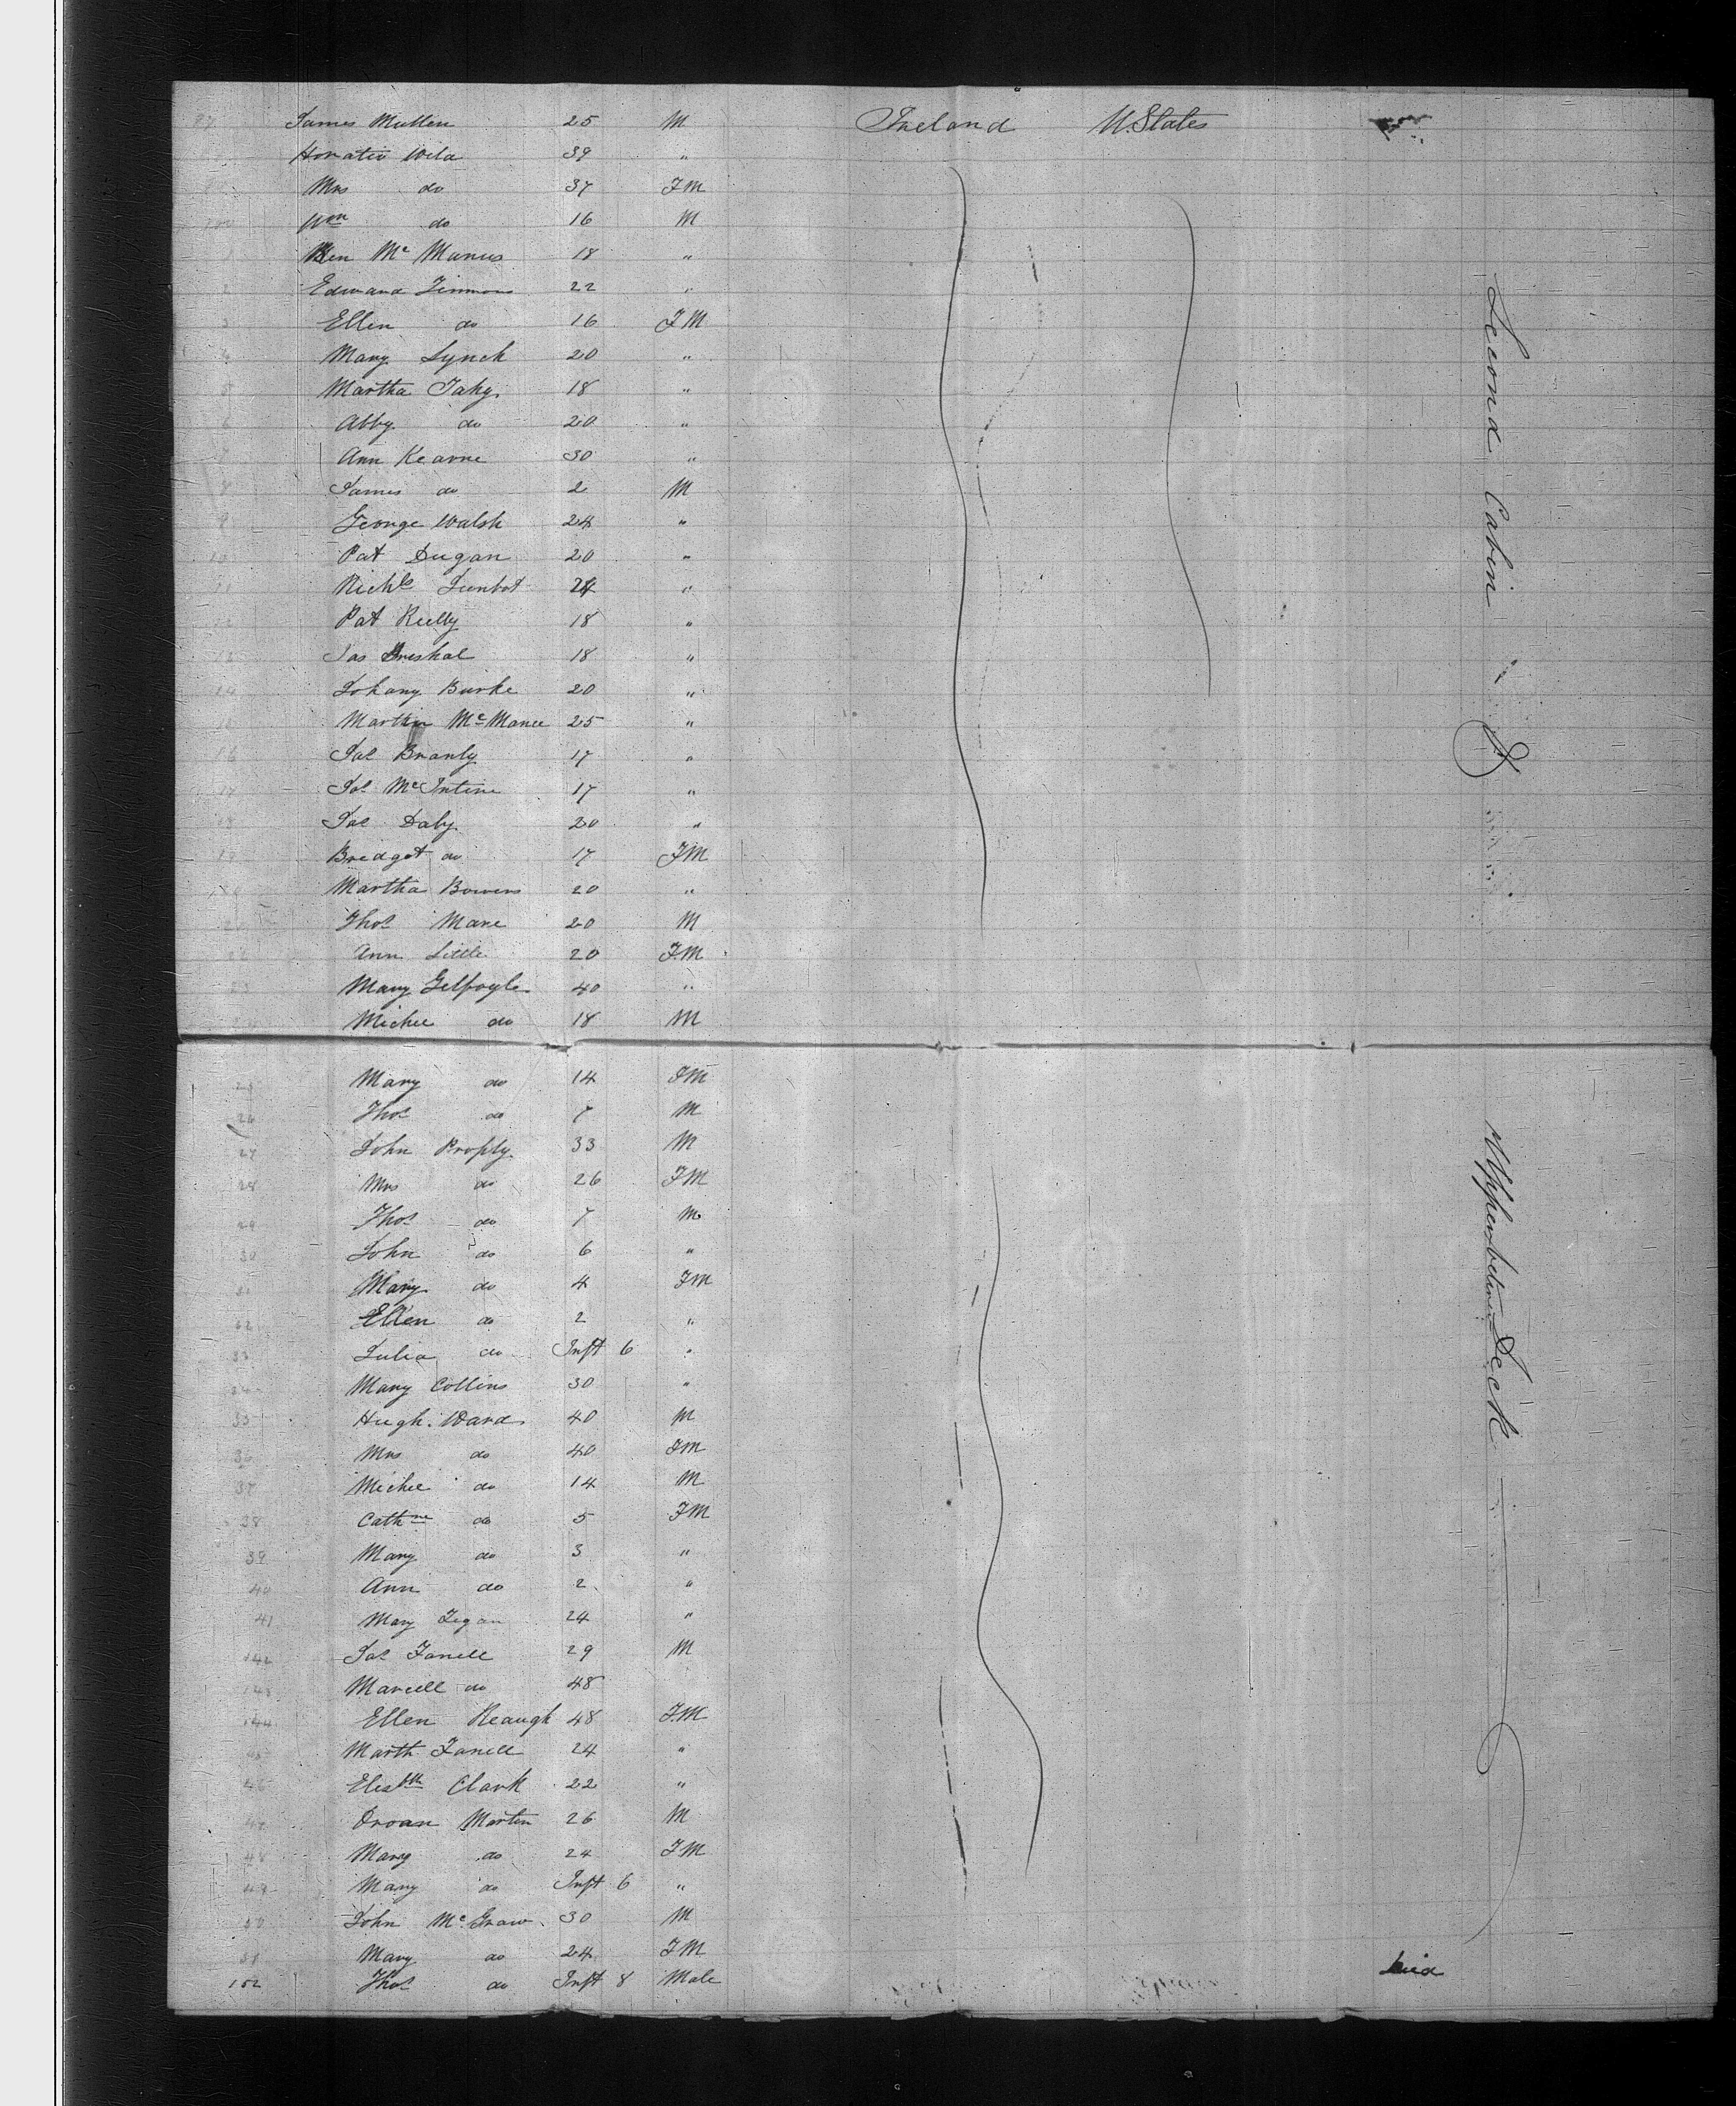 97 James Mullen 25 M Ireland U.States
Horatio Wila 39 "
Mrs do 37 FM
100 Wm do 16 M
1 Ben Mc Manus 18 "
2 Edward Timmons 22 "
3 Ellen do 16 FM
4 Mary Lynch 20 "
5 Martha Fahy. 18 "
6 Abby do 20 "
7 Ann Kearne 30 "
8 James do 2 M
9 George Walsh 24 "
10 Pat Dugan 20 "
11 Nichls 24 "
12 Pat Reilly 18 "
13 Jas 18 "
14 Johany Burke 20 "
15 Martin Mc Manee 25 "
16 Jas Branly 17 "
17 Jas McIntire 17 "
18 Jas Daly 20 "
19 Bredget do 17 FM
120 Martha Bowers 20 "
21 Thos Mare 20 M
22 Ann Little 20 FM
23 Mary Gelfoyle 40 "
24 Michee do 18 M
25 Mary do 14 FM
26 Thos do 7 M
27 John Brophy. 33 M
28 Mrs do 26 FM
29 Thos do 7 M
30 John do 6 "
31 Mary do 4 FM
32 Ellen do 2 "
33 Julia do Inft 6 "
34 Mary Collins 30 "
35 Hugh Ward 40 M
36 Mrs do 40 FM
37 Michee do 14 M
38 Cathne do 5 FM
39 Mary do 3 "
40 Ann do 2 "
41 Mary Fegan 24 "
142 Jas Farrell 29 M
143 Marcell do 48
144 Ellen Keaugh 48 FM
45 Marth Farrell 24 "
46 Elesbth Clark 22 "
47 Oroan Martin 26 M
48 Mary do 24 FM
49 Mary do Inft 6 "
50 John Mc Graw 30 M
51 Mary do 24 FM
152 Thos do Inft 8 Male Died
Second Cabin
Upper between Deck